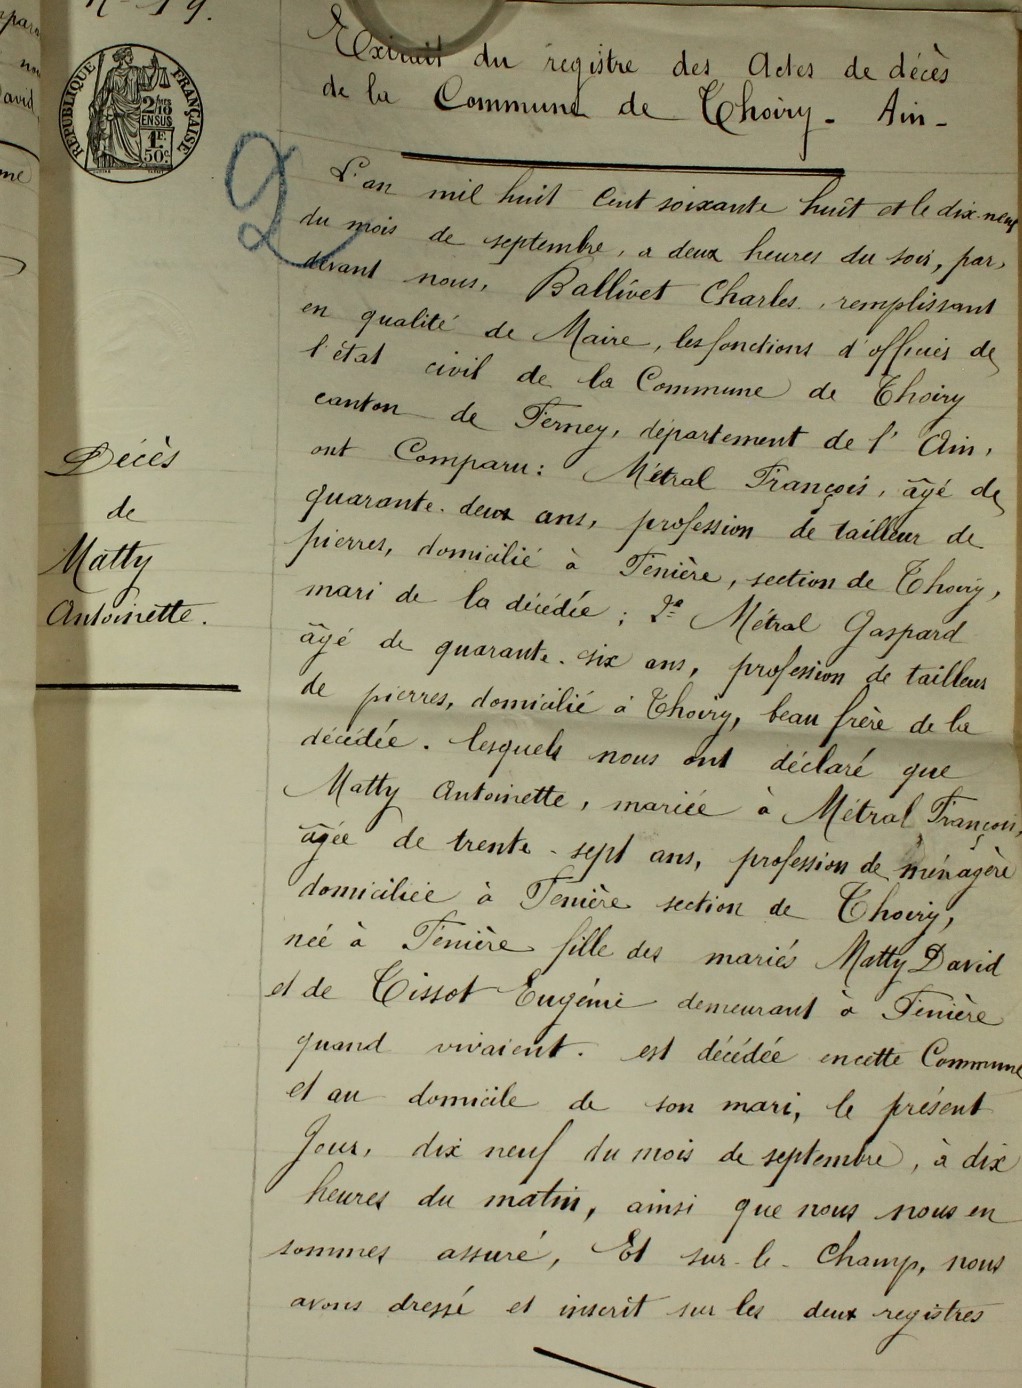 N° 19.
RÉPUBLIQUE FRANÇAISE
2/10
EN SUS
1F.
50c
David
2
Extrait du registre des Actes de décès
de la Commune de Thoiry - Ain -
L'an mil huit cent soixante huit et le dix-neuf
du mois de septembre, à deux heures du soir, par,
devant nous, Ballivet Charles, remplissant
en qualité de Maire, les fonctions d'officier de
l'état civil de la Commune de Thoiry
canton de Ferney, département de l'Ain,
ont Comparu: Métral François, âgé de
quarante-deux ans, profession de tailleur de
pierres, domicilié à Fenière, section de Thoiry,
mari de la décédée; 2° Métral Gaspard
âgé de quarante-six ans, profession de tailleur
de pierres, domicilié à Thoiry, beau frère de la
décédée. lesquels nous ont déclaré que
Matty Antoinette, mariée à Métral François,
âgée de trente-sept ans, profession de ménagère
domiciliée à Fenière section de Thoiry,
née à Fenière fille des mariés Matty David
et de Tissot Eugénie demeurant à Fenière
quand vivaient. est décédée en cette Commune
et au domicile de son mari, le présent
Jour, dix neuf du mois de septembre, à dix
heures du matin, ainsi que nous nous en
sommes assuré, Et sur-le-champ, nous
avons dressé et inscrit sur les deux registres
Décès
de
Matty
Antoinette.